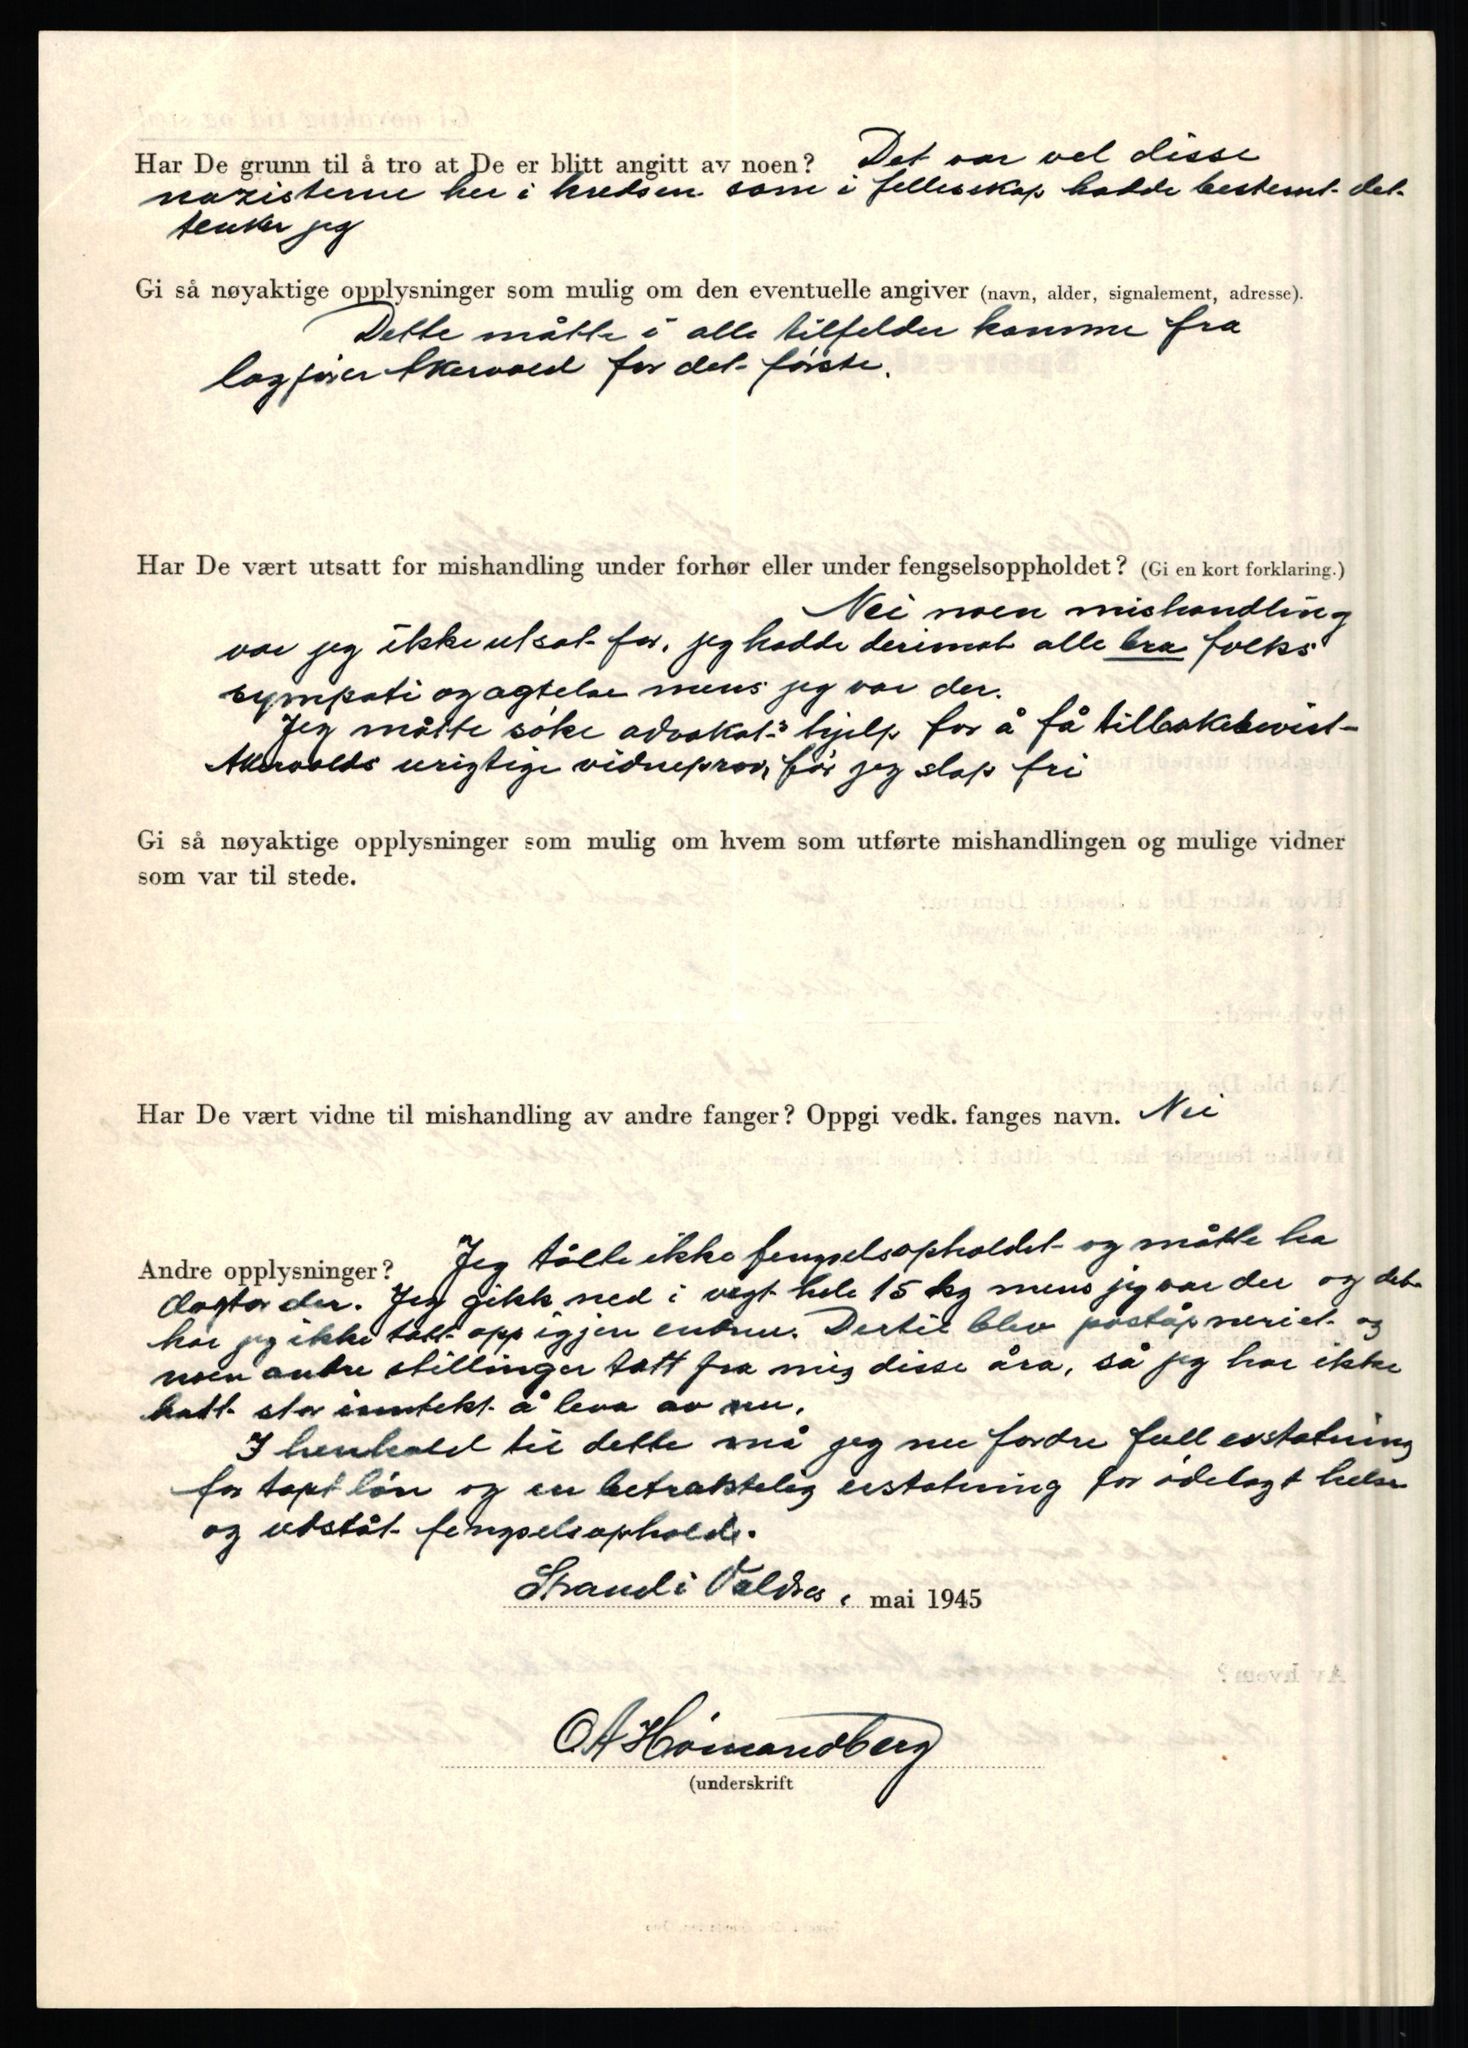 Har De grunn til å tro at De er blitt angitt av noen? Det var vel disse
nazisterne her i kredsen som i fellesskap hadde bestemt det
tenker jeg
Gi så nøyaktige opplysninger som mulig om den eventuelle angiver (navn, alder, signalement, adresse).
Dette måtte i alle tilfelder komme fra
lagfører Akervold for det første.
Har De vært utsatt for mishandling under forhør eller under fengselsoppholdet? (Gi en kort forklaring.)
Nei noen mishandling
var jeg ikke utsat for, jeg hadde derimot alle bra folks
sympati og agtelse mens jeg var der.
Jeg måtte söke advokat-hjelp for å få tilbakebevist
Akervolds urigtige vidneprov, før jeg slap fri
Gi så nøyaktige opplysninger som mulig om hvem som utførte mishandlingen og mulige vidner
som var til stede.
Har De vært vidne til mishandling av andre fanger? Oppgi vedk. fanges navn. Nei
Jeg tålte ikke fengselsopholdet og måtte ha
Andre opplysninger?
dogtor der. Jeg gikk ned i vegt hele 15 kg mens jeg var der og det
har jeg ikke tatt opp igjen endnu. Dertil blev poståpneriet og
noen andre stillinger tatt fra mig disse åra, så jeg har ikke
hatt stor inntekt å leva av nu.
I henhold til dette må jeg nu fordre full erstatning
for tapt lön og en betraktelig erstatning for ödelagt helse
og utståt fengselsophold.
Strand i Valdres, mai 1945
O A Hömandberg
(underskrift